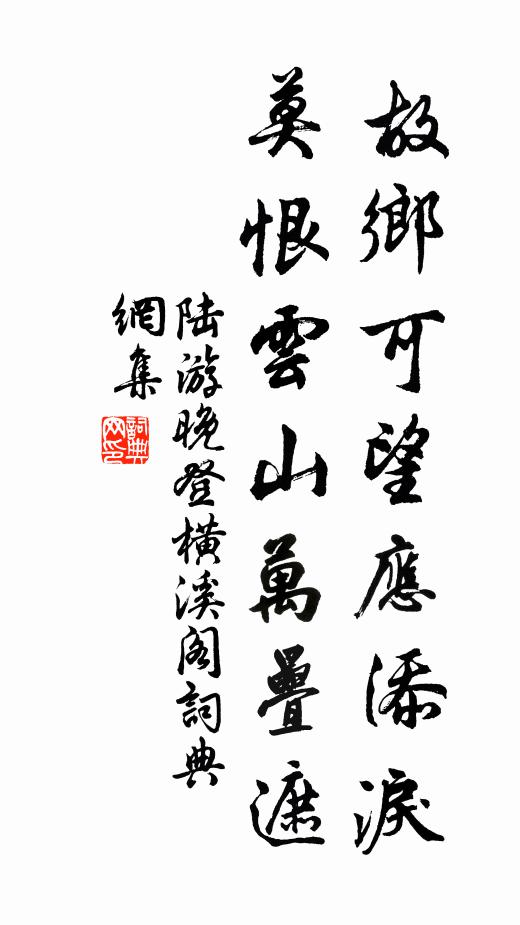 故鄉可望應添淚
莫恨雲山萬疊遮
陆游晚登橫溪阁詞典
網集
詞典
网印